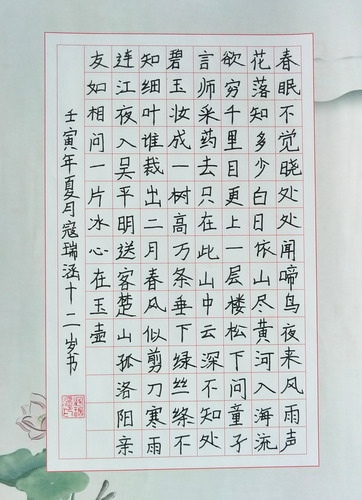 春眠不觉晓处处闻啼鸟夜来风雨声
花落知多少白日依山尽黄河入海流
欲穷千里目更上一层楼松下问童子
言师采药去只在此山中云深不知处
碧玉妆成一树高万条垂下绿丝绦不
知细叶谁裁出二月春风似剪刀寒雨
连江夜入吴平明送客楚山孤洛阳亲
友如相问一片冰心在玉壶
壬寅年夏月寇瑞涵十二岁书